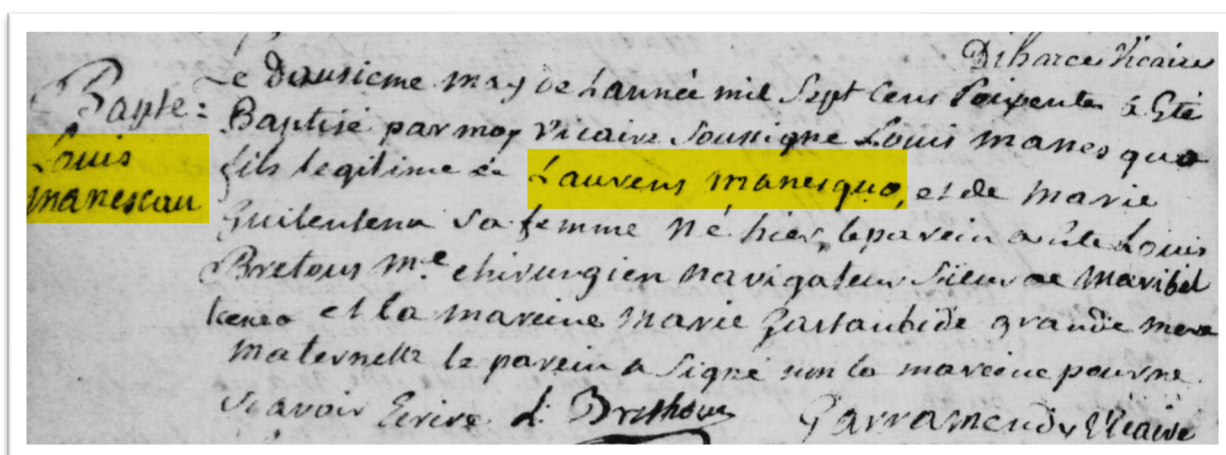 Diharce Vicaire
Bapte:
Louis
manescau
Le deusieme may de Lannée mil Sept Cens Soixente a Eté
Baptisé par moy Vicaire Soussigne Louis manesquo
fils legitime de Laurens manesquo, et de marie
sa femme Né hier, le parein a ete Louis
Bretous Me chirurgien navigateur Sieur de Maribel
et la mareine Marie grande mere
maternelle le parein a Signé non la mareine pour ne
Scavoir Ecrire L. Brethous Garramendy Vicaire